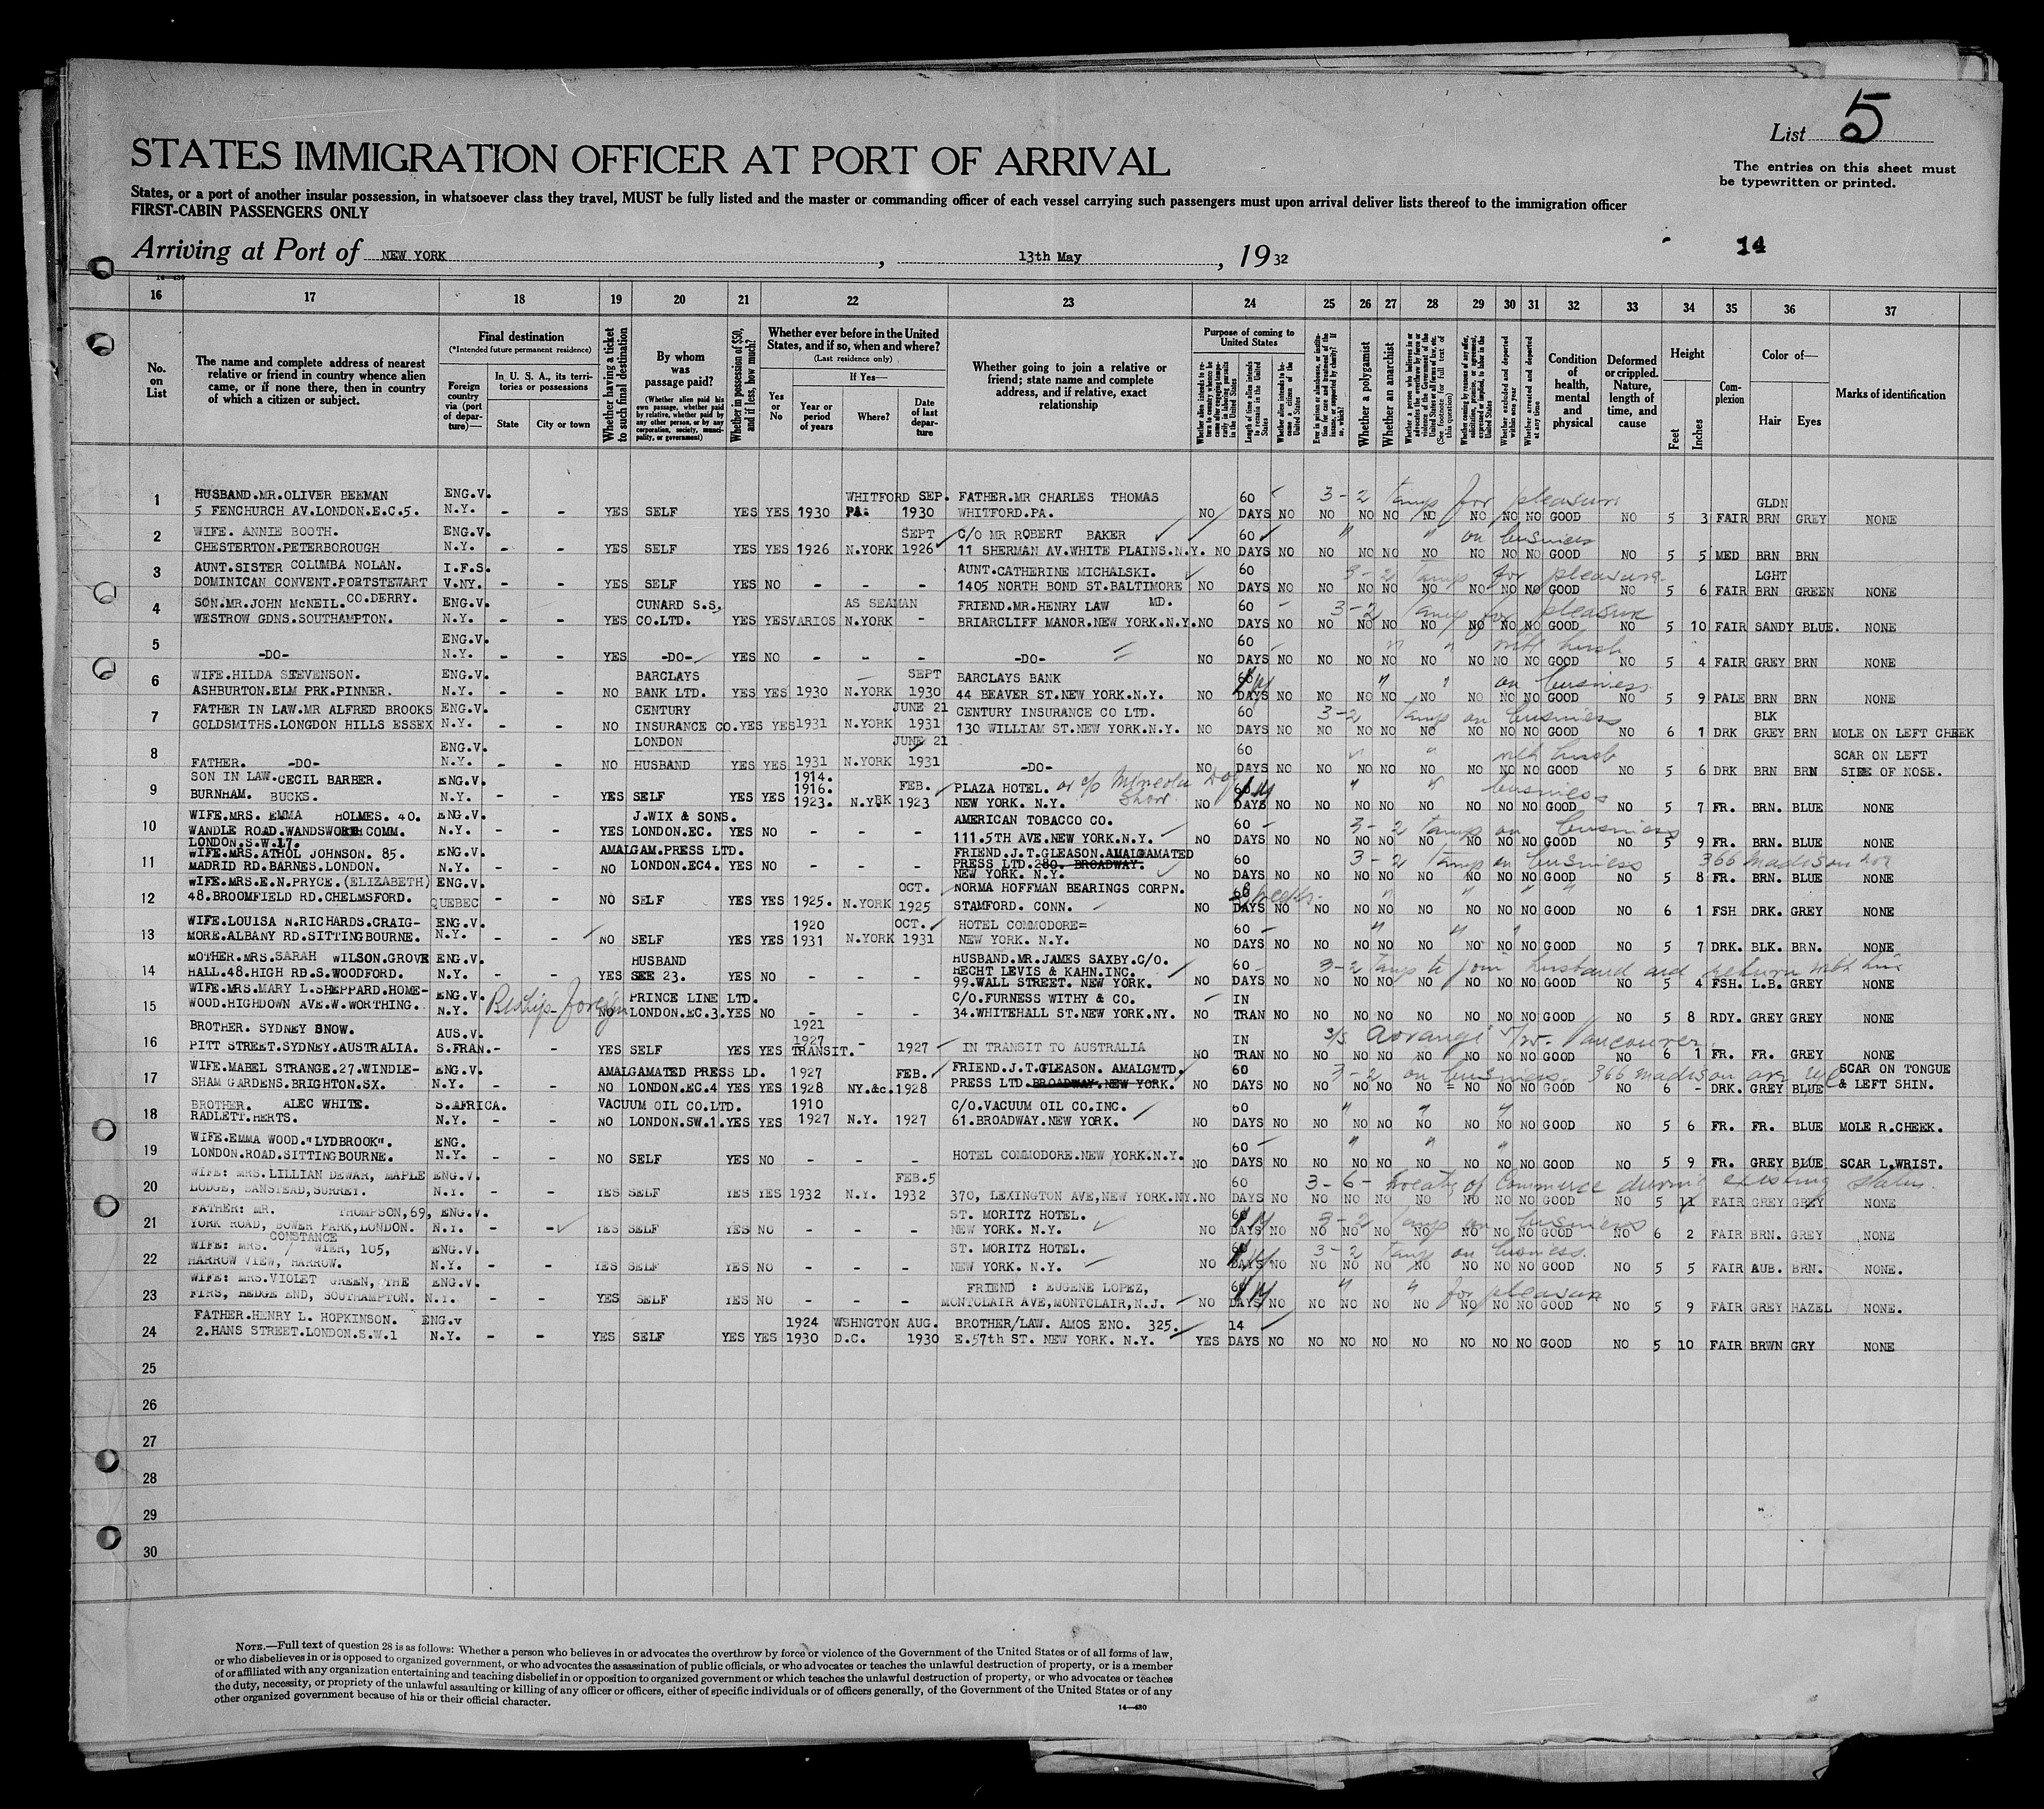 List 5
STATES IMMIGRATION OFFICER AT PORT OF ARRIVAL
The entries on this sheet must
be typewritten or printed.
States, or a port of another insular possession, in whatsoever class they travel, MUST be fully listed and the master or commanding officer of each vessel carrying such passengers must upon arrival deliver lists thereof to the immigration officer
FIRST-CABIN PASSENGERS ONLY
14
Arriving at Port of NEW YORK, 13th May, 1932
14—430
16 17 18 19 20 21 22 23 24 25 26 27 28 29 30 31 32 33 34 35 36 37
No. on List
The name and complete address of nearest relative or friend in country whence alien came, or if none there, then in country of which a citizen or subject.
Final destination
(*Intended future permanent residence)
Foreign country via (port of departure)—
In U. S. A., its territories or possessions
State
City or town
Whether having a ticket to such final destination
By whom was passage paid?
(Whether alien paid his own passage, whether paid by relative, whether paid by any other person, or by any corporation, society, municipality, or government)
Whether in possession of $50, and if less, how much?
Whether ever before in the United States, and if so, when and where?
(Last residence only)
Yes or No
If Yes—
Year or period of years
Where?
Date of last departure
Whether going to join a relative or friend; state name and complete address, and if relative, exact relationship
Purpose of coming to United States
Length of time alien intends to remain in the United States
Whether alien intends to become a citizen of the United States
Whether a polygamist
Whether an anarchist
(See footnote for full text of this question)
Whether excluded and deported within one year
Whether arrested and deported at any time
Condition of health, mental and physical
Deformed or crippled. Nature, length of time, and cause
Height
Feet
Inches
Complexion
Color of—
Hair
Eyes
Marks of identification
1 HUSBAND.MR.OLIVER BEEMAN ENG.V. WHITFORD SEP. FATHER.MR CHARLES THOMAS 60 3-2 Temp for pleasure GLDN
5 FENCHURCH AV.LONDON.E.C.5. N.Y. - - YES SELF YES YES 1930 PA. 1930 WHITFORD.PA. NO DAYS NO NO NO NO NO NO NO NO GOOD NO 5 3 FAIR BRN GREY NONE
2 WIFE. ANNIE BOOTH. ENG.V. SEPT C/O MR ROBERT BAKER 60 " " on business
CHESTERTON.PETERBOROUGH N.Y. - - YES SELF YES YES 1926 N.YORK 1926 11 SHERMAN AV.WHITE PLAINS.N.Y. NO DAYS NO NO NO NO NO NO NO NO GOOD NO 5 5 MED BRN BRN
3 AUNT.SISTER COLUMBA NOLAN. I.F.S. AUNT.CATHERINE MICHALSKI. 60 3-2 Temp for pleasure LGHT
DOMINICAN CONVENT.PORTSTEWART V.NY. - - YES SELF YES NO - - - 1405 NORTH BOND ST.BALTIMORE NO DAYS NO NO NO NO NO NO NO NO GOOD NO 5 6 FAIR BRN GREEN NONE
CO.DERRY. MD.
4 SON.MR.JOHN McNEIL. ENG.V. CUNARD S.S. AS SEAMAN FRIEND.MR.HENRY LAW 60 3-2 Temp for pleasure
WESTROW GDNS.SOUTHAMPTON. N.Y. - - YES CO.LTD. YES YES VARIOS N.YORK - BRIARCLIFF MANOR.NEW YORK.N.Y. NO DAYS NO NO NO NO NO NO NO NO GOOD NO 5 10 FAIR SANDY BLUE. NONE
5 ENG.V. 60 " " with husb
-DO- N.Y. - - YES -DO- YES NO - - - -DO- NO DAYS NO NO NO NO NO NO NO NO GOOD NO 5 4 FAIR GREY BRN NONE
6 WIFE.HILDA STEVENSON. ENG.V. BARCLAYS SEPT BARCLAYS BANK " " on business
ASHBURTON.ELM PRK.PINNER. N.Y. - - NO BANK LTD. YES YES 1930 N.YORK 1930 44 BEAVER ST.NEW YORK.N.Y. NO DAYS NO NO NO NO NO NO NO NO GOOD NO 5 9 PALE BRN BRN NONE
7 FATHER IN LAW.MR ALFRED BROOKS ENG.V. CENTURY JUNE 21 CENTURY INSURANCE CO LTD. 60 3-2 Temp on business BLK
GOLDSMITHS.LONGDON HILLS ESSEX N.Y. - - NO INSURANCE CO. YES YES 1931 N.YORK 1931 130 WILLIAM ST.NEW YORK.N.Y. NO DAYS NO NO NO NO NO NO NO NO GOOD NO 6 1 DRK GREY BRN MOLE ON LEFT CHEEK
LONDON
8 ENG.V. JUNE 21 60 " " with husb SCAR ON LEFT
FATHER. -DO- N.Y. - - NO HUSBAND YES YES 1931 N.YORK 1931 -DO- NO DAYS NO NO NO NO NO NO NO NO GOOD NO 5 6 DRK BRN BRN SIDE OF NOSE.
9 SON IN LAW.CECIL BARBER. ENG.V. 1914. 1916. FEB. PLAZA HOTEL. or c/o Mineola Dog Show " " business
BURNHAM. BUCKS. N.Y. - - YES SELF YES YES 1923. N.YRK 1923 NEW YORK. N.Y. NO DAYS NO NO NO NO NO NO NO NO GOOD NO 5 7 FR. BRN. BLUE NONE
10 WIFE.MRS. EMMA HOLMES. 40. ENG.V. J.WIX & SONS. AMERICAN TOBACCO CO. 60 3-2 Temp on business
WANDLE ROAD.WANDSWORTH COMM. N.Y. - - YES LONDON.EC. YES NO - - - 111.5TH AVE.NEW YORK.N.Y. NO DAYS NO NO NO NO NO NO NO NO GOOD NO 5 9 FR. BRN. BLUE NONE
LONDON.S.W.17.
11 WIFE.MRS.ATHOL JOHNSON. 85. ENG.V. AMALGAM.PRESS LTD. FRIEND.J.T.GLEASON.AMALGAMATED 60 3-2 Temp on business 366 Madison ave
MADRID RD.BARNES.LONDON. N.Y. - - NO LONDON.EC4. YES NO - - - PRESS LTD.280. BROADWAY. NEW YORK. N.Y. NO DAYS NO NO NO NO NO NO NO NO GOOD NO 5 8 FR. BRN. BLUE NONE
12 WIFE.MRS.E.N.PRYCE.(ELIZABETH) ENG.V. OCT. NORMA HOFFMAN BEARINGS CORPN. 60 weeks. " " " "
48.BROOMFIELD RD.CHELMSFORD. QUEBEC - - NO SELF YES YES 1925. N.YORK 1925 STAMFORD. CONN. NO DAYS NO NO NO NO NO NO NO NO GOOD NO 6 1 FSH DRK. GREY NONE
13 WIFE.LOUISA N.RICHARDS.CRAIG- ENG.V. 1920 OCT. HOTEL COMMODORE= 60 " " "
MORE.ALBANY RD.SITTINGBOURNE. N.Y. - - NO SELF YES YES 1931 N.YORK 1931 NEW YORK. N.Y. NO DAYS NO NO NO NO NO NO NO NO GOOD NO 5 7 DRK. BLK. BRN. NONE
14 MOTHER.MRS.SARAH WILSON.GROVE ENG.V. HUSBAND HUSBAND.MR.JAMES SAXBY.C/O. 60 3-2 Temp to join husband and return with him
HALL.48.HIGH RD.S.WOODFORD. N.Y. - - YES SEE 23. YES NO - - - HECHT LEVIS & KAHN.INC. 99.WALL STREET. NEW YORK. NO DAYS NO NO NO NO NO NO NO NO GOOD NO 5 4 FSH. L.B. GREY NONE
15 WIFE.MRS.MARY L.SHEPPARD.HOME- ENG.V. PRINCE LINE LTD. C/O.FURNESS WITHY & CO. IN
WOOD.HIGHDOWN AVE.W.WORTHING. N.Y. Reship-foreign NO LONDON.EC.3. YES NO - - - 34.WHITEHALL ST.NEW YORK.NY. NO TRAN NO NO NO NO NO NO NO NO GOOD NO 5 8 RDY. GREY GREY NONE
16 BROTHER. SYDNEY SNOW. AUS.V. 1921 1927 IN 3/3 Aorangi 5/25. Vancouver.
PITT STREET.SYDNEY.AUSTRALIA. S.FRAN. - - YES SELF YES YES TRANSIT. - 1927 IN TRANSIT TO AUSTRALIA NO TRAN NO NO NO NO NO NO NO NO GOOD NO 6 1 FR. FR. GREY NONE
17 WIFE.MABEL STRANGE.27.WINDLE- ENG.V. AMALGAMATED PRESS LD. 1927 FEB. FRIEND.J.T.GLEASON. AMALGMTD. 60 3-2 on business. 366 Madison ave SCAR ON TONGUE
SHAM GARDENS.BRIGHTON.SX. N.Y. - - NO LONDON.EC.4 YES YES 1928 NY.&c. 1928 PRESS LTD.BROADWAY.NEW YORK. NO DAYS NO NO NO NO NO = NO NO NO GOOD NO 6 - DRK. GREY BLUE & LEFT SHIN.
18 BROTHER. ALEC WHITE. S.AFRICA. VACUUM OIL CO.LTD. 1910 C/O.VACUUM OIL CO.INC. 60 " " "
RADLETT.HERTS. N.Y. - - NO LONDON.SW.1. YES YES 1927 N.Y. 1927 61.BROADWAY.NEW YORK. NO DAYS NO NO NO NO NO NO NO NO GOOD NO 5 6 FR. FR. BLUE MOLE R.CHEEK.
19 WIFE.EMMA WOOD."LYDBROOK". ENG. 60 " " "
LONDON.ROAD.SITTINGBOURNE. N.Y. - - NO SELF YES NO - - - HOTEL COMMODORE.NEW YORK.N.Y. NO DAYS NO NO NO NO NO NO NO NO GOOD NO 5 9 FR. GREY BLUE SCAR L.WRIST.
20 WIFE: MRS.LILLIAN DEWAR, MAPLE ENG.V. FEB.5 60 3-6- Treaty of Commerce during existing status.
LODGE, BANSTEAD,SURREY. N.Y. - - YES SELF YES YES 1932 N.Y. 1932 370, LEXINGTON AVE,NEW YORK.NY. NO DAYS NO NO NO NO NO NO NO NO GOOD NO 5 11 FAIR GREY GREY NONE
21 FATHER: MR. THOMPSON,69, ENG.V. ST. MORITZ HOTEL. 60 3-2 Temp on business
YORK ROAD, BOWER PARK,LONDON. N.Y. - - YES SELF YES NO - - - NEW YORK. N.Y. NO DAYS NO NO NO NO NO NO NO NO GOOD NO 6 2 FAIR BRN. GREY NONE
CONSTANCE
22 WIFE: MRS. / WIER, 105, ENG.V. ST. MORITZ HOTEL. 60 3-2 Temp on business.
HARROW VIEW, HARROW. N.Y. - - YES SELF YES NO - - - NEW YORK. N.Y. NO DAYS NO NO NO NO NO NO NO NO GOOD NO 5 5 FAIR AUB. BRN. NONE.
23 WIFE: MRS.VIOLET GREEN, THE ENG.V. FRIEND : EUGENE LOPEZ, 60 " " for pleasure
FIRS, HEDGE END, SOUTHAMPTON. N.Y. - - YES SELF YES NO - - - MONTCLAIR AVE,MONTCLAIR,N.J. NO DAYS NO NO NO NO NO NO NO NO GOOD NO 5 9 FAIR GREY HAZEL NONE.
24 FATHER.HENRY L. HOPKINSON. ENG.v 1924 WSHNGTON AUG. BROTHER/LAW. AMOS ENO. 325. 14
2.HANS STREET.LONDON.S.W.1 N.Y. - - YES SELF YES YES 1930 D.C. 1930 E.57th ST. NEW YORK. N.Y. YES DAYS NO NO NO NO NO NO NO NO GOOD NO 5 10 FAIR BRWN GRY NONE
25
26
27
28
29
30
NOTE.—Full text of question 28 is as follows: Whether a person who believes in or advocates the overthrow by force or violence of the Government of the United States or of all forms of law,
or who disbelieves in or is opposed to organized government, or who advocates the assassination of public officials, or who advocates or teaches the unlawful destruction of property, or is a member
of or affiliated with any organization entertaining and teaching disbelief in or opposition to organized government or which teaches the unlawful destruction of property, or who advocates or teaches
the duty, necessity, or propriety of the unlawful assaulting or killing of any officer or officers, either of specific individuals or of officers generally, of the Government of the United States or of any
other organized government because of his or their official character.
14—430